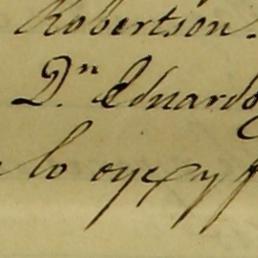 Robertson.
Dⁿ. Eduardo
lo oye, y